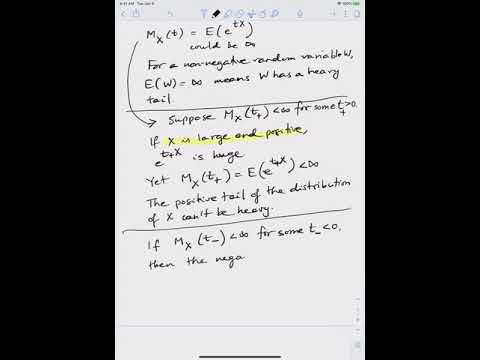 M_X(t) = E(e^{tX})
could be ∞
For a non-negative random variable W,
E(W) = ∞ means W has a heavy
tail.
Suppose M_X(t_+) < ∞ for some t_+ > 0.
If X is large and positive,
e^{t_+X} is huge
Yet M_X(t_+) = E(e^{t_+X}) < ∞
The positive tail of the distribution
of X can't be heavy.
If M_X(t_-) < ∞ for some t_- < 0,
then the nega